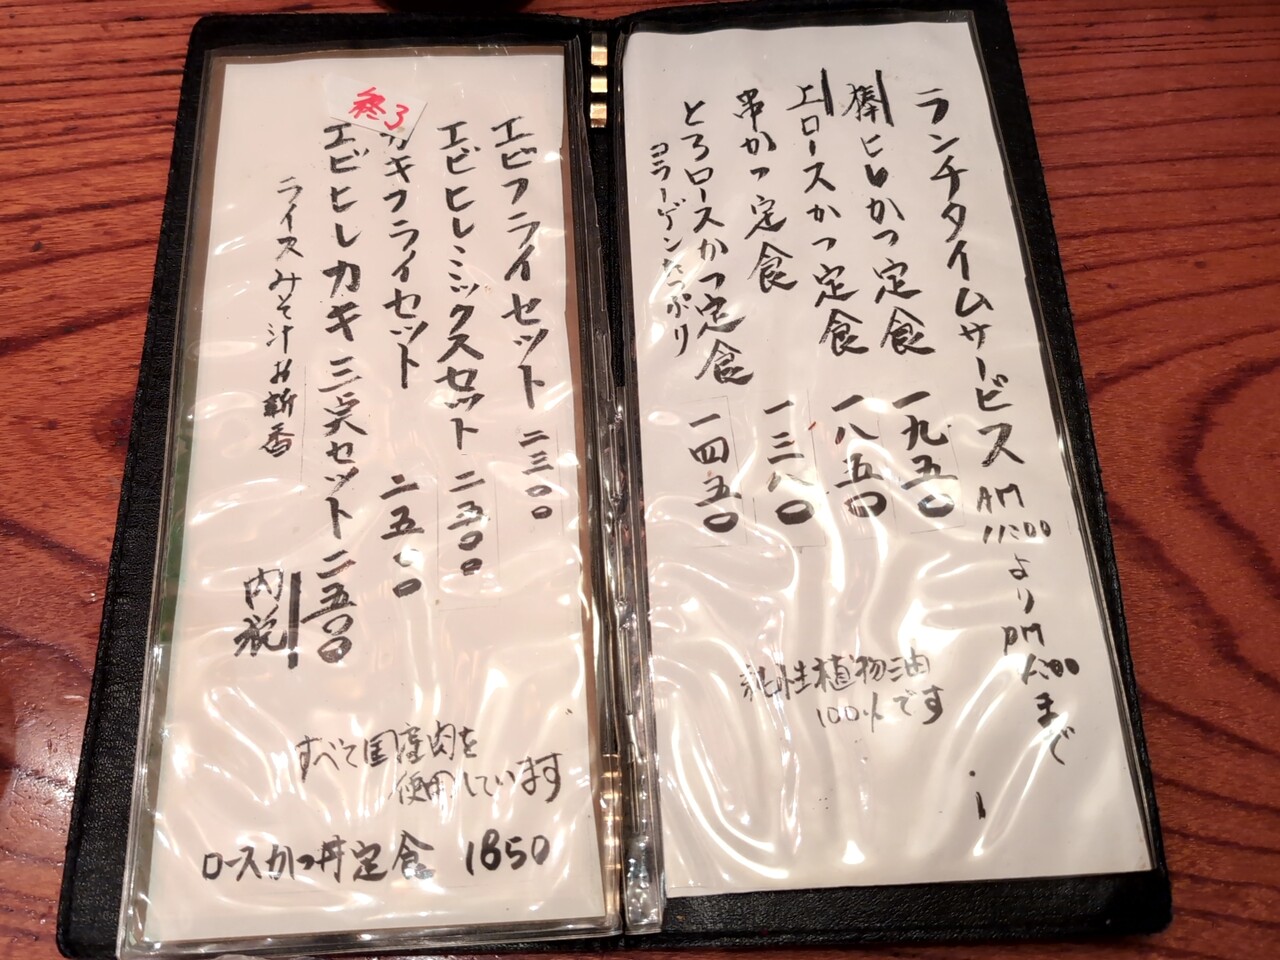 ランチタイムサービス AM 11:00 より PM 15:00 まで
棒ヒレかつ定食 一九五〇
上ロースかつ定食 一八五〇
串かつ定食 一三八〇
とろロースかつ定食 一四五〇
コラーゲンたっぷり
植物油
100%です
エビフライセット 二三〇〇
エビヒレミックスセット 二五〇〇
終了
カキフライセット 二五〇〇
エビヒレカキ三点セット 二五〇〇
ライスみそ汁お新香
内税
すべて国産肉を
使用しています
ロースかつ丼定食 1850